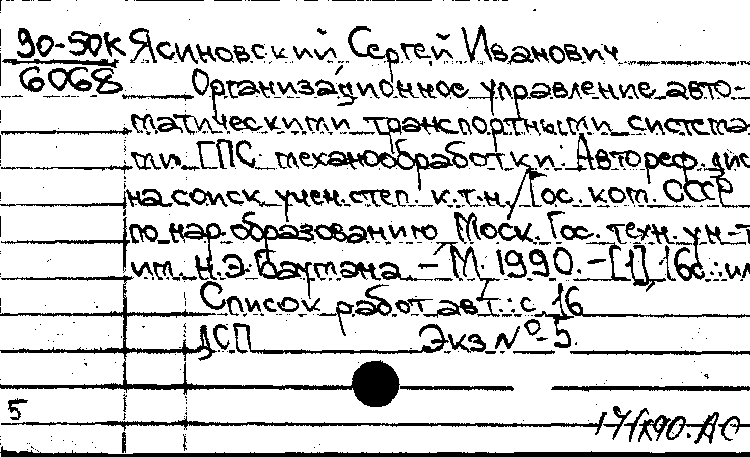 90-50К Ясиновский Сергей Иванович
6068 Организационное управление авто-
матическими транспортными система-
ми ГПС механообработки: Автореф. дис
на соиск учен. степ. к.т.н. Гос. ком. СССР
по нар образованию Моск. Гос. техн. ун-т
им. Н.Э. Баумана. – М. 1990. – [1] 16с.: ил
Список работ авт.: с. 16
ДСП Экз № 5
5